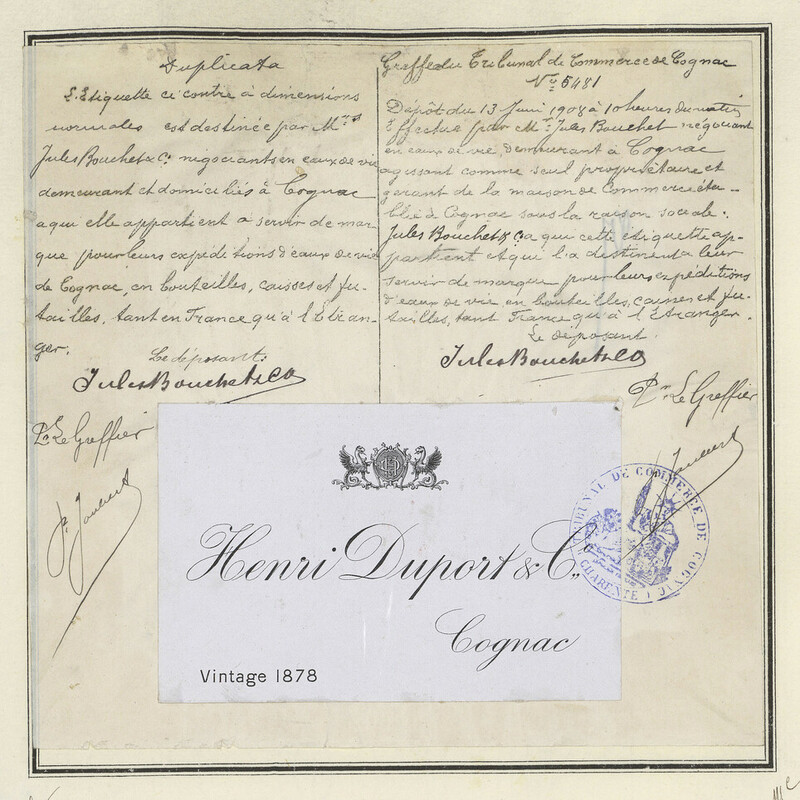 Duplicata
L'Etiquette ci contre à dimensions
normales est destinée par Mrs
Jules Bouchet & Co. négociants en eaux de vie
demeurant et domiciliés à Cognac
a qui elle appartient a servir de mar-
que pour leurs expéditions d'eaux de vie
de Cognac, en bouteilles, caisses et fu-
tailles, tant en France qu'à l'Etran-
ger.
Le déposant:
Jules Bouchet & Co
Pr Le Greffier
Greffe du Tribunal de Commerce de Cognac
No 5481
Dépôt du 13 Juin 1908 à 10 heures du matin
Effectué par Mr. Jules Bouchet négociant
en eaux de vie, demeurant à Cognac
agissant comme seul propriétaire et
gérant de la maison de Commerce éta-
blie à Cognac sous la raison sociale:
Jules Bouchet & Co a qui cette étiquette ap-
partient et qui l'a destinent a leur
servir de marque pour leurs expéditions
d'eaux de vie en bouteilles, caisses et fu-
tailles, tant France qu'à l'Etranger.
Le déposant
Jules Bouchet & Co
Pr Le Greffier
Henri Duport & C.
Cognac
Vintage 1878
TRIBUNAL DE COMMERCE DE COGNAC
CHARENTE